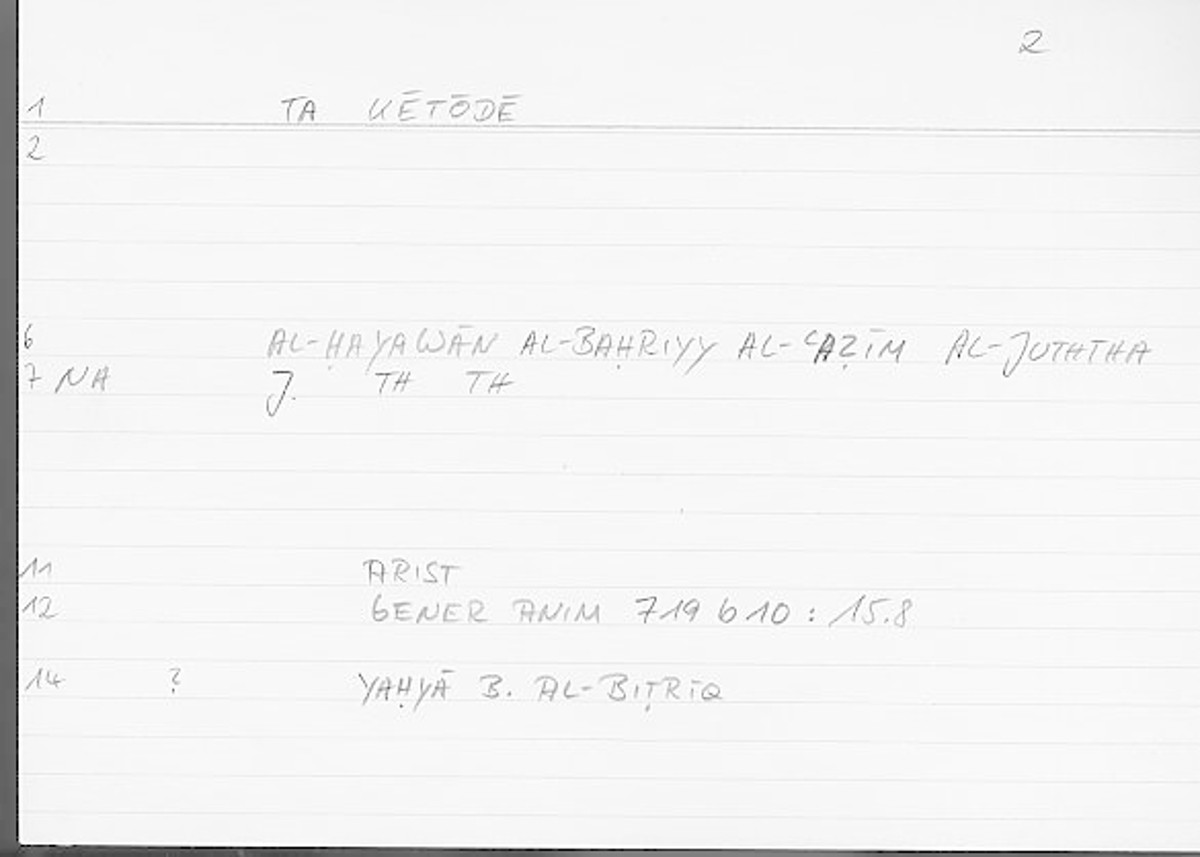 2
1 TA KĒTŌDĒ
2
6 AL-ḤAYAWĀN AL-BAḤRIYY AL-ʿAẒĪM AL-JUTHTHA
7 NA J. TH TH
11 ARIST
12 GENER ANIM 719 b 10 : 15.8
14 ? YAḤYĀ B. AL-BIṬRĪQ